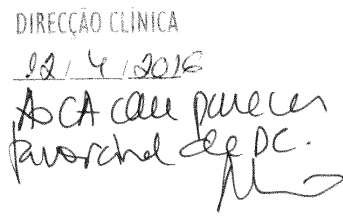 DIRECÇÃO CLÍNICA
12/4/2016
Ao CA com parecer
favorável da DC.